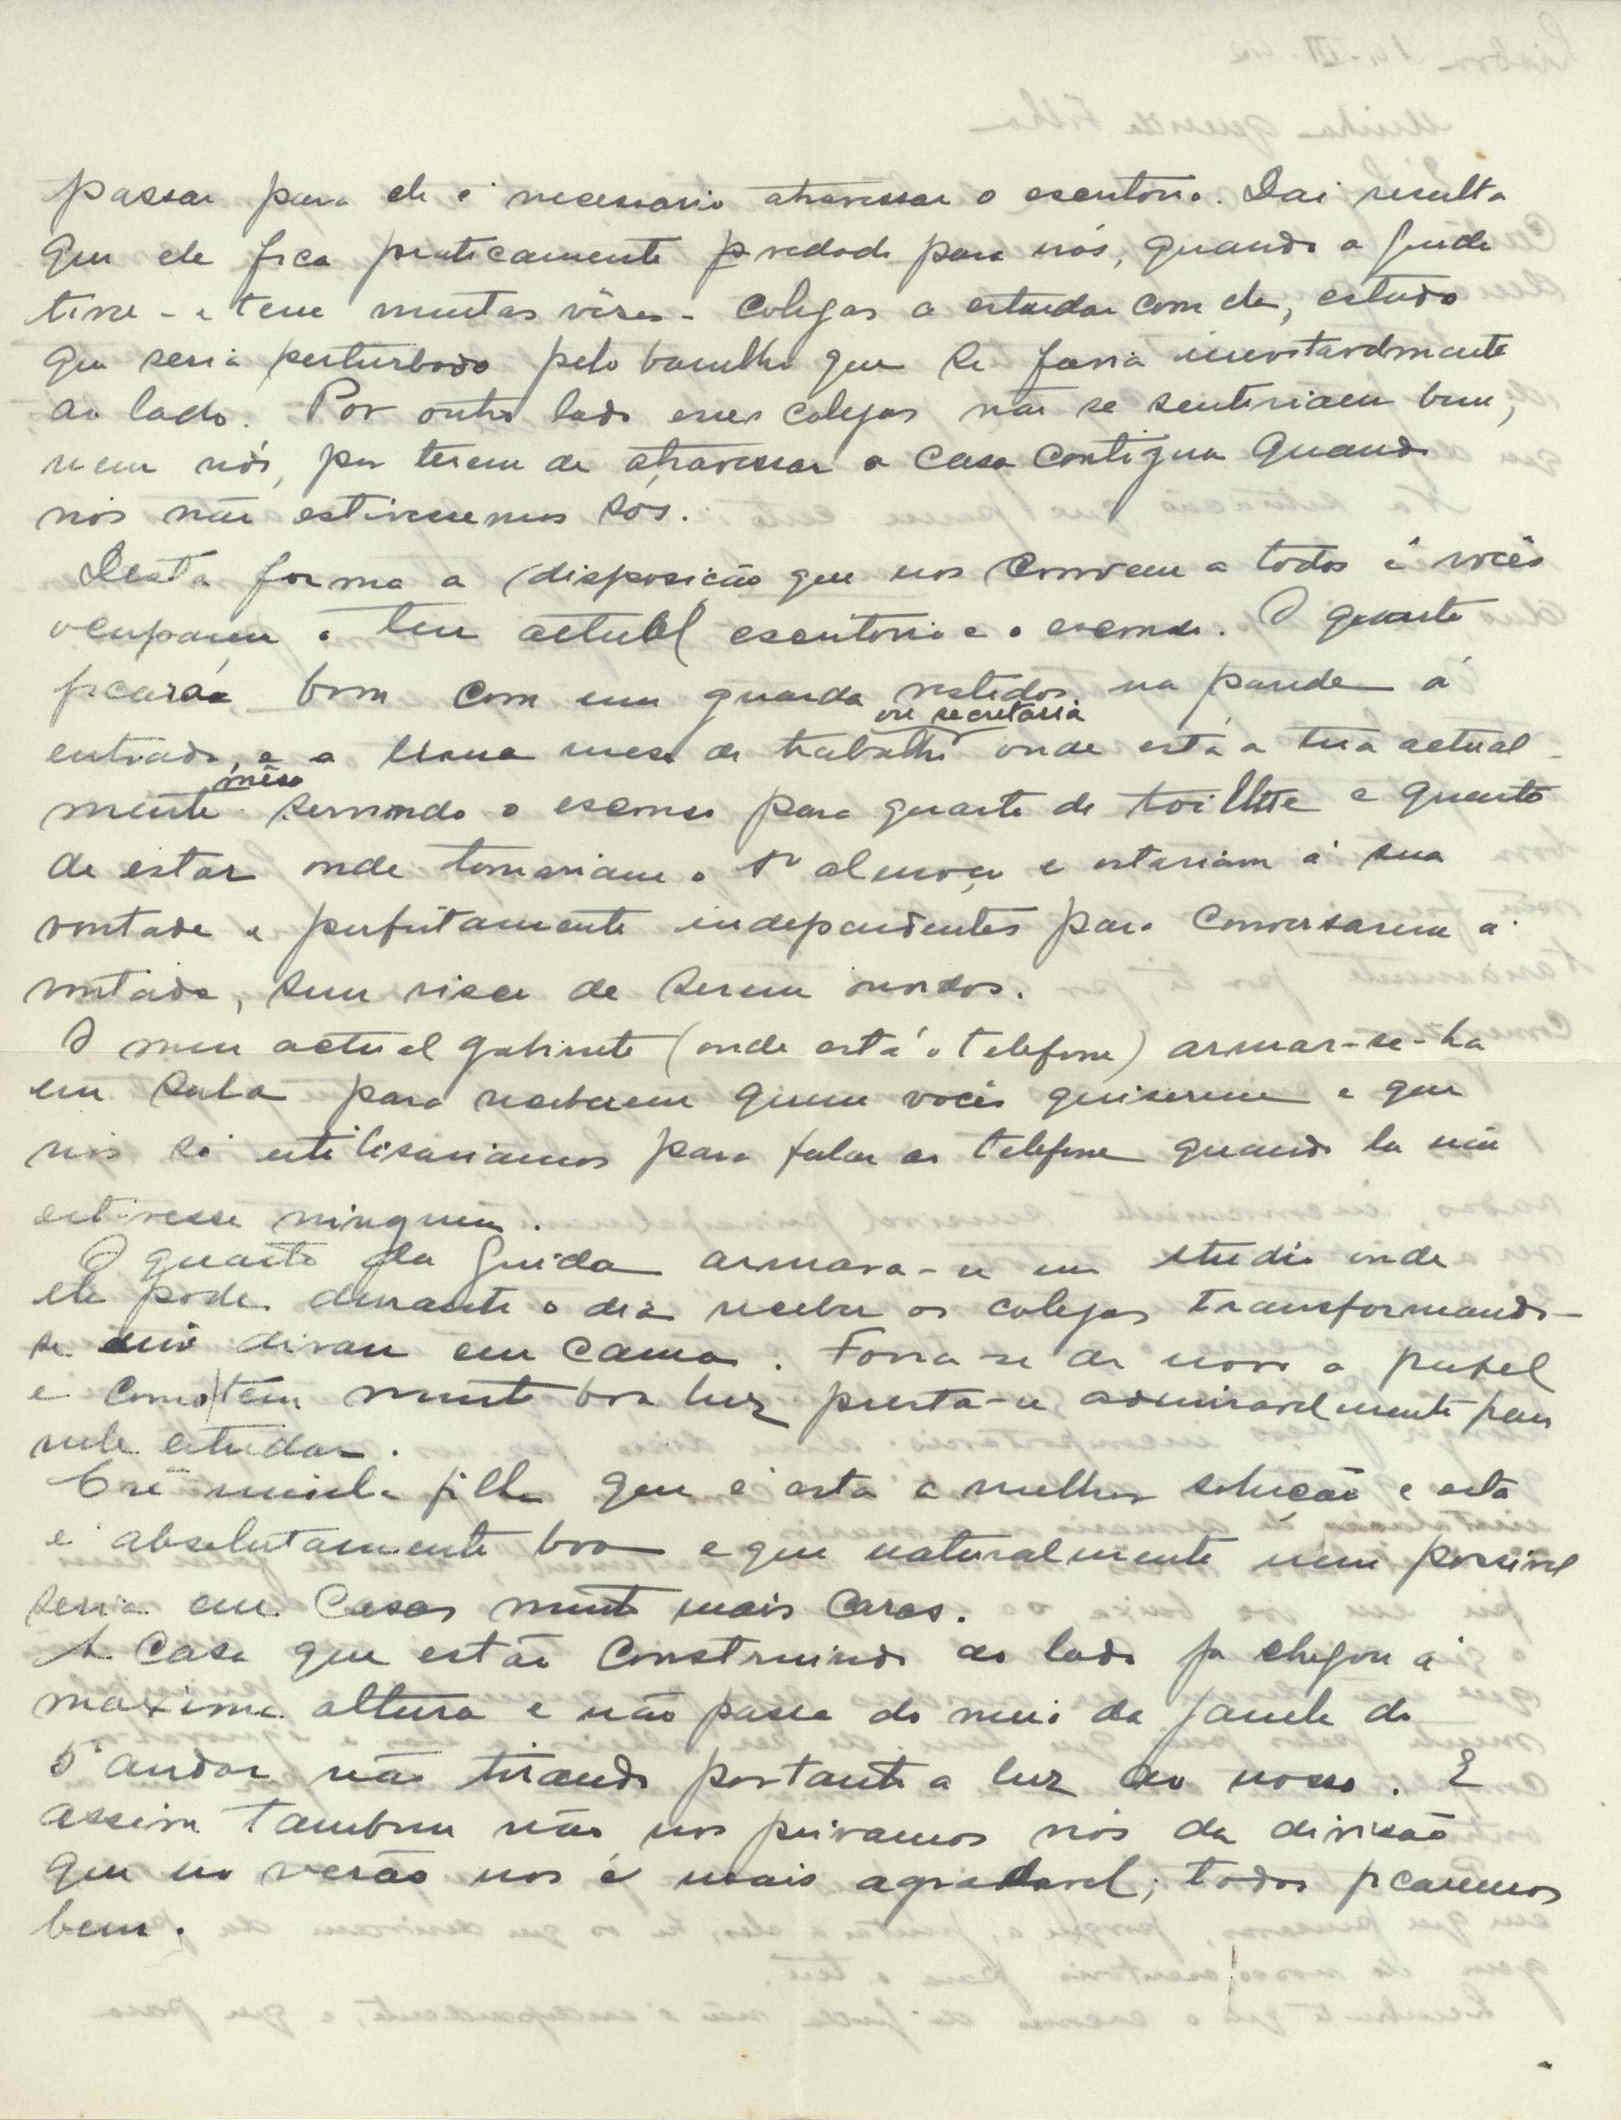 passar para ele é necessario atravessar o escritorio. Dai resulta
que ele fica praticamente vedado para nós, quando a Guida
tiver - e tem muitas vêses - colegas a estudar com ela, estudo
que seria perturbado pelo barulho que se faria inevitavelmente
ao lado. Por outro lado esses colegas não se sentiriam bem,
nem nós, por terem de atravessar a casa contigua quando
nós não estivessemos sós.
Desta forma a disposição que nos convem a todos é vocês
ocuparem o teu actual escritorio e o esconso. O quarto
ficará bom com um guarda vestidos na parede á
entrada, e a mesa de trabalho ou secretaria onde está a tua actual-
mente servindo o esconso para quarto de toillete e quarto
de estar onde tomariam o 1º almoço e estariam á sua
vontade e perfeitamente independentes para conversarem á
vontade, sem risco de serem ouvidos.
O meu actual gabinete (onde está o telefone) armar-se-ha
em sala para receberem quem vocês quiserem e que
nós só utilisariamos para falar ao telefone quando la não
estivesse ninguem.
O quarto da Guida armara-se em studio onde
ela pode durante o dia receber os colegas transformando-
se divan em cama. Forra-se de novo a papel
e como tem muito boa luz presta-se admiravelmente para
nele estudar.
Crê minha filha que é esta a melhor solução e esta
é absolutamente boa e que naturalmente nem possivel
seria em casas muito mais caras.
A casa que estão construindo ao lado ja chegou á
maxima altura e não passa do meio da janela do
5º andar não tirando portanto a luz ao nosso. E
assim tambem não nos privamos nós da divisão
que no verão nos é mais agradavel; todos ficaremos
bem.